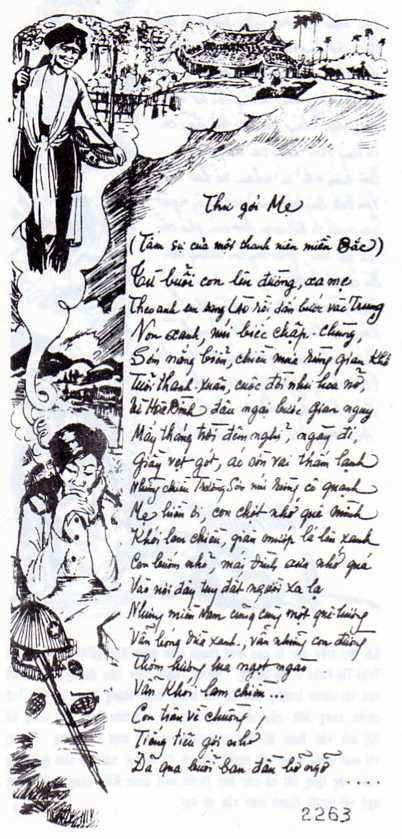 Thư gởi Mẹ
(Tâm sự của một thanh niên miền Bắc)
Từ buổi con lên đường, xa mẹ
Theo anh em sang Lào rồi dấn bước vào Trung
Non xanh, núi biếc chập-chùng,
Sớm nắng biển, chiều mưa rừng gian khổ
Tuổi thanh-xuân, cuộc đời như hoa nở,
Vì Hòa Bình đâu ngại bước gian nguy
Mấy tháng trời đêm nghỉ, ngày đi,
Giày vẹt gót, áo sờn vai thấm lạnh
Những chiều Trường Sơn núi rừng cô quạnh
Mẹ hiền ơi, con chợt nhớ quê mình
Khói lam chiều, giàn mướp lá lên xanh
Con bướm nhỏ, mái đình xưa nhớ quá
Vào nơi đây tuy đất người xa lạ
Nhưng miền Nam cũng cùng một quê hương
Vẫn hàng xanh, vẫn những con đường
Thơm hương lúa ngọt ngào
Vẫn khói lam chiều...
Con trâu về chuồng,
Tiếng tiêu gợi nhớ
Đã qua buổi ban đầu bỡ ngỡ ....
2263